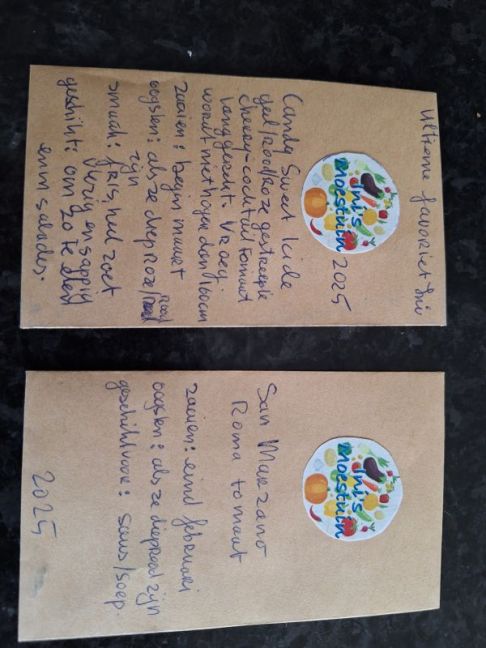 Ultieme favoriet Ini
Ini's
Moestuin
2025
Candy Sweet Icicle
geel/rood/roze gestreepte
cherry-cocktail tomaat
langgerekt. Vroeg.
wordt niet hoger dan 160cm
zaaien: begin maart
oogsten: als ze dieproze/rood
zijn
smaak: FRIS, heel zoet
fluzig en sappig
geschikt: om zo te eten
en in salades.
Ini's
Moestuin
San Marzano
Roma tomaat
zaaien: eind februari
oogsten: als ze dieprood zijn
geschikt voor: saus/soep.
2025